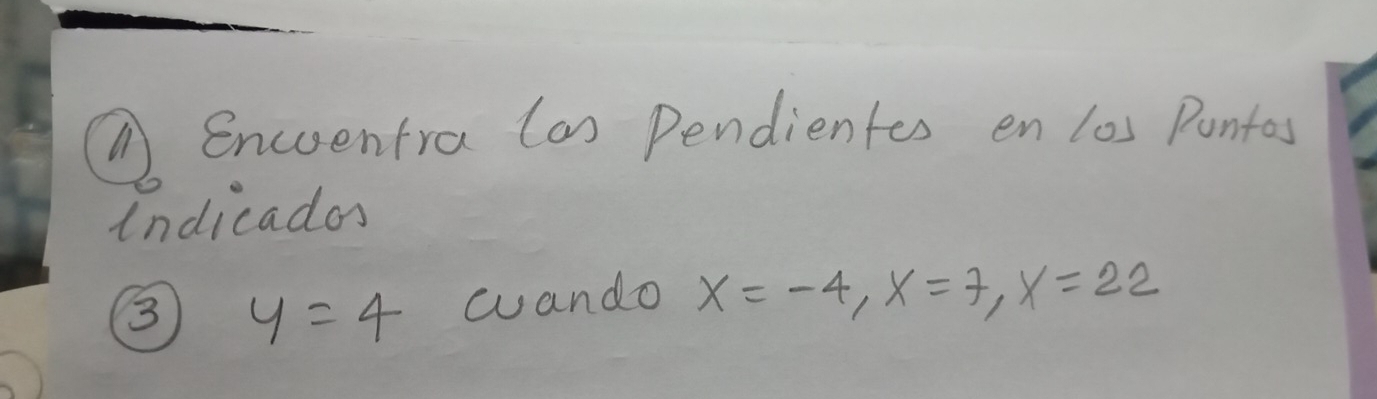 11 Encuentra las pendientes en los Puntos
indicados
3 y=4 cuando x=-4, x=7, x=22